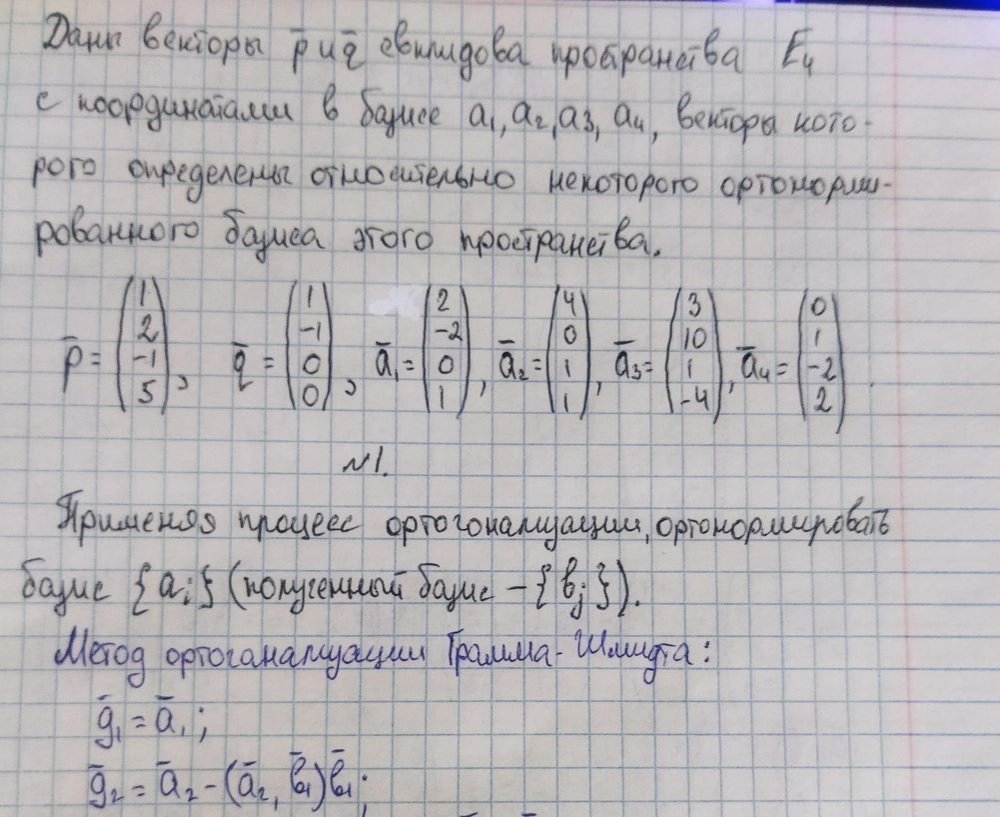 Даны векторы p̄ и q̄ евклидова пространства E₄
с координатами в базисе a₁, a₂, a₃, a₄, векторы кото-
рого определены относительно некоторого ортонорми-
рованного базиса этого пространства.
p̄ = (1 2 -1 5), q̄ = (1 -1 0 0), ā₁ = (2 -2 0 1), ā₂ = (4 0 1 1), ā₃ = (3 10 1 -4), ā₄ = (0 1 -2 2).
№1.
Применяя процесс ортогонализации, ортонормировать
базис {aᵢ} (полученный базис – {bⱼ}).
Метод ортоганализации Грамма-Шмидта:
ḡ₁ = ā₁;
ḡ₂ = ā₂ - (ā₂, b̄₁)b̄₁;